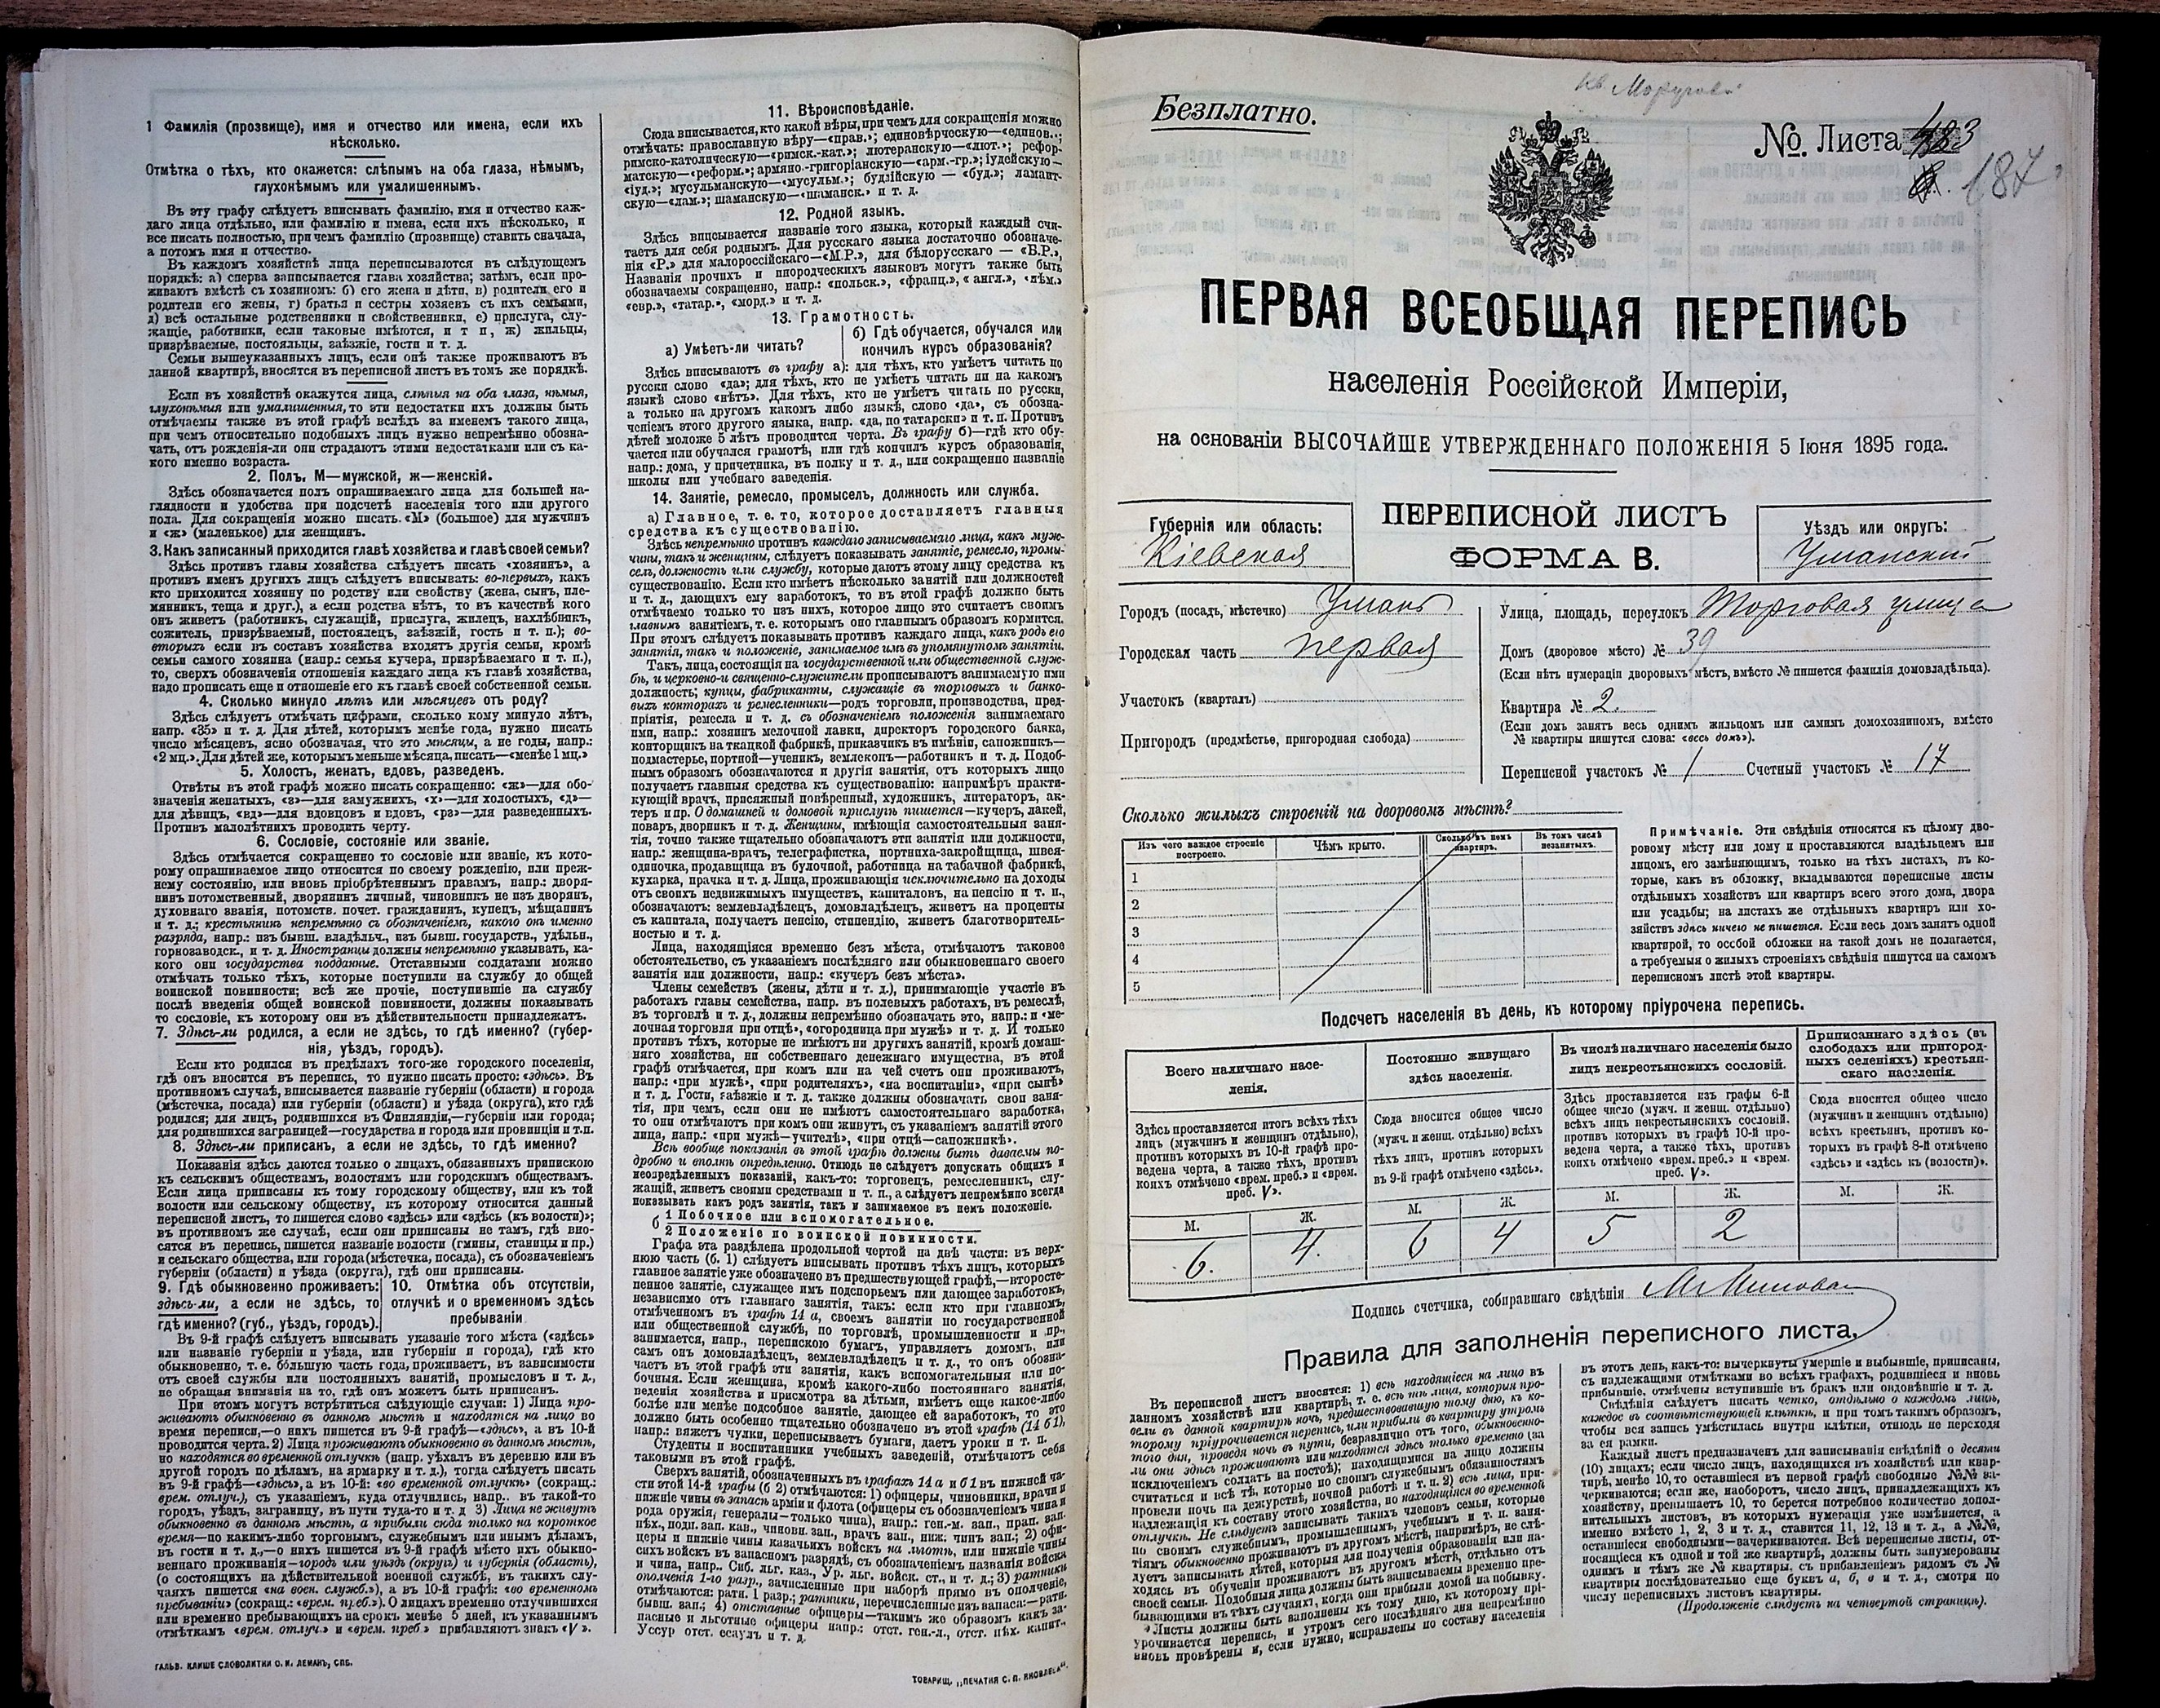 1 Фамилія (прозвище), имя и отчество или имена, если ихъ
нѣсколько.
Отмѣтка о тѣхъ, кто окажется: слѣпымъ на оба глаза, нѣмымъ,
глухонѣмымъ или умалишеннымъ.
Въ эту графу слѣдуетъ вписывать фамилію, имя и отчество каж-
даго лица отдѣльно, или фамилію и имена, если ихъ нѣсколько, и
все писать полностью, при чемъ фамилію (прозвище) ставить сначала,
а потомъ имя и отчество.
Въ каждомъ хозяйствѣ лица переписываются въ слѣдующемъ
порядкѣ: а) сперва записывается глава хозяйства; затѣмъ, если про-
живаютъ вмѣстѣ съ хозяиномъ: б) его жена и дѣти, в) родители его и
родители его жены, г) братья и сестры хозяевъ съ ихъ семьями,
д) всѣ остальные родственники и свойственники, е) прислуга, слу-
жащіе, работники, если таковые имѣются, и т п, ж) жильцы,
призрѣваемые, постояльцы, заѣзжіе, гости и т. д.
Семьи вышеуказанныхъ лицъ, если онѣ также проживаютъ въ
данной квартирѣ, вносятся въ переписной листъ въ томъ же порядкѣ.
Если въ хозяйствѣ окажутся лица, слѣпыя на оба глаза, нѣмыя,
глухонѣмыя или умалишенныя, то эти недостатки ихъ должны быть
отмѣчаемы также въ этой графѣ вслѣдъ за именемъ такого лица,
при чемъ относительно подобныхъ лицъ нужно непремѣнно обозна-
чать, отъ рожденія-ли они страдаютъ этими недостатками или съ ка-
кого именно возраста.
2. Полъ. М—мужской, ж—женскій.
Здѣсь обозначается полъ опрашиваемаго лица для большей на-
глядности и удобства при подсчетѣ населенія того или другого
пола. Для сокращенія можно писать «М» (большое) для мужчинъ
и «ж» (маленькое) для женщинъ.
3. Какъ записанный приходится главѣ хозяйства и главѣ своей семьи?
Здѣсь противъ главы хозяйства слѣдуетъ писать «хозяинъ», а
противъ именъ другихъ лицъ слѣдуетъ вписывать: во-первыхъ, какъ
кто приходится хозяину по родству или свойству (жена, сынъ, пле-
мянникъ, теща и друг.), а если родства нѣтъ, то въ качествѣ кого
онъ живетъ (работникъ, служащій, прислуга, жилецъ, нахлѣбникъ,
сожитель, призрѣваемый, постоялецъ, заѣзжій, гость и т. п.); во-
вторыхъ если въ составъ хозяйства входятъ другія семьи, кромѣ
семьи самого хозяина (напр.: семья кучера, призрѣваемаго и т. п.),
то, сверхъ обозначенія отношенія каждаго лица къ главѣ хозяйства,
надо прописать еще и отношеніе его къ главѣ своей собственной семьи.
4. Сколько минуло лѣтъ или мѣсяцевъ отъ роду?
Здѣсь слѣдуетъ отмѣчать цифрами, сколько кому минуло лѣтъ,
напр. «35» и т. д. Для дѣтей, которымъ менѣе года, нужно писать
число мѣсяцевъ, ясно обозначая, что это мѣсяцы, а не годы, напр.:
«2 мц.». Для дѣтей же, которымъ меньше мѣсяца, писать—«менѣе 1 мц.»
5. Холостъ, женатъ, вдовъ, разведенъ.
Отвѣты въ этой графѣ можно писать сокращенно: «ж»—для обо-
значенія женатыхъ, «з»—для замужнихъ, «х»—для холостыхъ, «д»—
для дѣвицъ, «вд»—для вдовцовъ и вдовъ, «рз»—для разведенныхъ.
Противъ малолѣтнихъ проводить черту.
6. Сословіе, состояніе или званіе.
Здѣсь отмѣчается сокращенно то сословіе или званіе, къ кото-
рому опрашиваемое лицо относится по своему рожденію, или преж-
нему состоянію, или вновь пріобрѣтеннымъ правамъ, напр.: дворя-
нинъ потомственный, дворянинъ личный, чиновникъ не изъ дворянъ,
духовнаго званія, потомств. почет. гражданинъ, купецъ, мѣщанинъ
и т. д.; крестьянинъ непремѣнно съ обозначеніемъ, какого онъ именно
разряда, напр.: изъ бывш. владѣльч., изъ бывш. государств., удѣльн.,
горнозаводск., и т. д. Иностранцы должны непремѣнно указывать, ка-
кого они государства подданные. Отставными солдатами можно
отмѣчать только тѣхъ, которые поступили на службу до общей
воинской повинности; всѣ же прочіе, поступившіе на службу
послѣ введенія общей воинской повинности, должны показывать
то сословіе, къ которому они въ дѣйствительности принадлежатъ.
7. Здѣсь-ли родился, а если не здѣсь, то гдѣ именно? (губер-
нія, уѣздъ, городъ).
Если кто родился въ предѣлахъ того-же городского поселенія,
гдѣ онъ вносится въ перепись, то нужно писать просто: «здѣсь». Въ
противномъ случаѣ, вписывается названіе губерніи (области) и города
(мѣстечка, посада) или губерніи (области) и уѣзда (округа), кто гдѣ
родился; для лицъ, родившихся въ Финляндіи,—губерніи или города;
для родившихся заграницей—государства и города или провинціи и т.п.
8. Здѣсь-ли приписанъ, а если не здѣсь, то гдѣ именно?
Показанія здѣсь даются только о лицахъ, обязанныхъ припискою
къ сельскимъ обществамъ, волостямъ или городскимъ обществамъ.
Если лица приписаны къ тому городскому обществу, или къ той
волости или сельскому обществу, къ которому относится данный
переписной листъ, то пишется слово «здѣсь» или «здѣсь (къ волости)»;
въ противномъ же случаѣ, если они приписаны не тамъ, гдѣ вно-
сятся въ перепись, пишется названіе волости (гмины, станицы и пр.)
и сельскаго общества, или города (мѣстечка, посада), съ обозначеніемъ
губерніи (области) и уѣзда (округа), гдѣ они приписаны.
9. Гдѣ обыкновенно проживаетъ:
здѣсь-ли, а если не здѣсь, то
гдѣ именно? (губ., уѣздъ, городъ).
10. Отмѣтка объ отсутствіи,
отлучкѣ и о временномъ здѣсь
пребываніи
Въ 9-й графѣ слѣдуетъ вписывать указаніе того мѣста («здѣсь»
или названіе губерніи и уѣзда, или губерніи и города), гдѣ кто
обыкновенно, т. е. бо́льшую часть года, проживаетъ, въ зависимости
отъ своей службы или постоянныхъ занятій, промысловъ и т. д.,
не обращая вниманія на то, гдѣ онъ можетъ быть приписанъ.
При этомъ могутъ встрѣтиться слѣдующіе случаи: 1) Лица про-
живаютъ обыкновенно въ данномъ мѣстѣ и находятся на лицо во
время переписи,—о нихъ пишется въ 9-й графѣ—«здѣсь», а въ 10-й
проводится черта. 2) Лица проживаютъ обыкновенно въ данномъ мѣстѣ,
но находятся во временной отлучкѣ (напр. уѣхалъ въ деревню или въ
другой городъ по дѣламъ, на ярмарку и т. д.), тогда слѣдуетъ писать
въ 9-й графѣ—«здѣсь», а въ 10-й: «во временной отлучкѣ» (сокращ.:
врем. отлуч.), съ указаніемъ, куда отлучились, напр.. въ такой-то
городъ, уѣздъ, заграницу, въ пути туда-то и т. д 3) Лица не живутъ
обыкновенно въ данномъ мѣстѣ, а прибыли сюда только на короткое
время—по какимъ-либо торговымъ, служебнымъ или инымъ дѣламъ,
въ гости и т. д.,—о нихъ пишется въ 9-й графѣ мѣсто ихъ обыкно-
веннаго проживанія—городъ или уѣздъ (округъ) и губернія (область),
(о состоящихъ на дѣйствительной военной службѣ, въ такихъ слу-
чаяхъ пишется «на воен. служб.»), а въ 10-й графѣ: «во временномъ
пребываніи» (сокращ.: «врем. преб.»). О лицахъ временно отлучившихся
или временно пребывающихъ на срокъ менѣе 5 дней, къ указаннымъ
отмѣткамъ «врем. отлуч.» и «врем. преб » прибавляютъ знакъ «V ».
ГАЛЬВ. КЛИШЕ СЛОВОЛИТНИ О. И. ЛЕМАНЪ, СПБ.
11. Вѣроисповѣданіе.
Сюда вписывается, кто какой вѣры, при чемъ для сокращенія можно
отмѣчать: православную вѣру—«прав.»; единовѣрческую—«единов.»;
римско-католическую—«римск.-кат.»; лютеранскую—«лют.»; рефор-
матскую—«реформ.»; армяно-григоріанскую—«арм.-гр.»; іудейскую—
«іуд.»; мусульманскую—«мусульм.»; буддійскую — «буд.»; ламаит-
скую—«лам.»; шаманскую—«шаманск.» и т. д.
12. Родной языкъ.
Здѣсь вписывается названіе того языка, который каждый счи-
таетъ для себя роднымъ. Для русскаго языка достаточно обозначе-
нія «Р.» для малороссійскаго—«М.Р.», для бѣлорусскаго — «Б.Р.»,
Названія прочихъ и инородческихъ языковъ могутъ также быть
обозначаемы сокращенно, напр.: «польск.», «франц.», « англ.», «нѣм.»
«евр.», «татар.», «морд.» и т. д.
13. Грамотность.
а) Умѣетъ-ли читать?
б) Гдѣ обучается, обучался или
кончилъ курсъ образованія?
Здѣсь вписываютъ въ графу а): для тѣхъ, кто умѣетъ читать по
русски слово «да»; для тѣхъ, кто не умѣетъ читать ни на какомъ
языкѣ слово «нѣтъ». Для тѣхъ, кто не умѣетъ читать по русски,
а только на другомъ какомъ либо языкѣ, слово «да», съ обозна-
ченіемъ этого другого языка, напр. «да, по татарски» и т. п. Противъ
дѣтей моложе 5 лѣтъ проводится черта. Въ графу б)—гдѣ кто обу-
чается или обучался грамотѣ, или гдѣ кончилъ курсъ образованія,
напр.: дома, у причетника, въ полку и т. д., или сокращенно названіе
школы или учебнаго заведенія.
14. Занятіе, ремесло, промыселъ, должность или служба.
а) Главное, т. е. то, которое доставляетъ главныя
средства къ существованію.
Здѣсь непремѣнно противъ каждаго записываемаго лица, какъ муж-
чины, такъ и женщины, слѣдуетъ показывать занятіе, ремесло, промы-
селъ, должность или службу, которые даютъ этому лицу средства къ
существованію. Если кто имѣетъ нѣсколько занятій или должностей
и т. д., дающихъ ему заработокъ, то въ этой графѣ должно быть
отмѣчаемо только то изъ нихъ, которое лицо это считаетъ своимъ
главнымъ занятіемъ, т. е. которымъ оно главнымъ образомъ кормится.
При этомъ слѣдуетъ показывать противъ каждаго лица, какъ родъ его
занятія, такъ и положеніе, занимаемое имъ въ упомянутомъ занятіи.
Такъ, лица, состоящія на государственной или общественной служ-
бѣ, и церковно-и священно-служители прописываютъ занимаемую ими
должность; купцы, фабриканты, служащіе въ торговыхъ и банко-
выхъ конторахъ и ремесленники—родъ торговли, производства, пред-
пріятія, ремесла и т. д. съ обозначеніемъ положенія занимаемаго
ими, напр.: хозяинъ мелочной лавки, директоръ городского банка,
конторщикъ на ткацкой фабрикѣ, приказчикъ въ имѣніи, сапожникъ—
подмастерье, портной—ученикъ, землекопъ—работникъ и т. д. Подоб-
нымъ образомъ обозначаются и другія занятія, отъ которыхъ лицо
получаетъ главныя средства къ существованію: напримѣръ практи-
кующій врачъ, присяжный повѣренный, художникъ, литераторъ, ак-
теръ и пр. О домашней и домовой прислугѣ пишется—кучеръ, лакей,
поваръ, дворникъ и т. д. Женщины, имѣющія самостоятельныя заня-
тія, точно также тщательно обозначаютъ эти занятія или должности,
напр.: женщина-врачъ, телеграфистка, портниха-закройщица, швея-
одиночка, продавщица въ булочной, работница на табачной фабрикѣ,
кухарка, прачка и т. д. Лица, проживающія исключительно на доходы
отъ своихъ недвижимыхъ имуществъ, капиталовъ, на пенсію и т. п.,
обозначаютъ: землевладѣлецъ, домовладѣлецъ, живетъ на проценты
съ капитала, получаетъ пенсію, стипендію, живетъ благотворитель-
ностью и т. д.
Лица, находящіяся временно безъ мѣста, отмѣчаютъ таковое
обстоятельство, съ указаніемъ послѣдняго или обыкновеннаго своего
занятія или должности, напр.: «кучеръ безъ мѣста».
Члены семействъ (жены, дѣти и т. д.), принимающіе участіе въ
работахъ главы семейства, напр. въ полевыхъ работахъ, въ ремеслѣ,
въ торговлѣ и т. д., должны непремѣнно обозначать это, напр.: и «ме-
лочная торговля при отцѣ», «огородница при мужѣ» и т. д. И только
противъ тѣхъ, которые не имѣютъ ни другихъ занятій, кромѣ домаш-
няго хозяйства, ни собственнаго денежнаго имущества, въ этой
графѣ отмѣчается, при комъ или на чей счетъ они проживаютъ,
напр.: «при мужѣ», «при родителяхъ», «на воспитаніи», «при сынѣ»
и т. д. Гости, заѣзжіе и т. д. также должны обозначать свои заня-
тія, при чемъ, если они не имѣютъ самостоятельнаго заработка,
то они отмѣчаютъ при комъ они живутъ, съ указаніемъ занятій этого
лица, напр.: «при мужѣ—учителѣ», «при отцѣ—сапожникѣ».
Всѣ вообще показанія въ этой графѣ должны быть даваемы по-
дробно и вполнѣ опредѣленно. Отнюдь не слѣдуетъ допускать общихъ и
неопредѣленныхъ показаній, какъ-то: торговецъ, ремесленникъ, слу-
жащій, живетъ своими средствами и т. п., а слѣдуетъ непремѣнно всегда
показывать какъ родъ занятія, такъ и занимаемое въ немъ положеніе.
б 1 Побочное или вспомогательное.
2 Положеніе по воинской повинности.
Графа эта раздѣлена продольной чертой на двѣ части: въ верх-
нюю часть (б. 1) слѣдуетъ вписывать противъ тѣхъ лицъ, которыхъ
главное занятіе уже обозначено въ предшествующей графѣ,—второсте-
пенное занятіе, служащее имъ подспорьемъ или дающее заработокъ,
независимо отъ главнаго занятія, такъ: если кто при главномъ,
отмѣченномъ въ графѣ 14 а, своемъ занятіи по государственной
или общественной службѣ, по торговлѣ, промышленности и пр.,
занимается, напр., перепискою бумагъ, управляетъ домомъ, или
самъ онъ домовладѣлецъ, землевладѣлецъ и т. д., то онъ обозна-
чаетъ въ этой графѣ эти занятія, какъ вспомогательныя или по-
бочныя. Если женщина, кромѣ какого-либо постояннаго занятія,
веденія хозяйства и присмотра за дѣтьми, имѣетъ еще какое-либо
болѣе или менѣе подсобное занятіе, дающее ей заработокъ, то это
должно быть особенно тщательно обозначено въ этой графѣ (14 б 1),
напр.: вяжетъ чулки, переписываетъ бумаги, даетъ уроки и т. п.
Студенты и воспитанники учебныхъ заведеній, отмѣчаютъ себя
таковыми въ этой графѣ.
Сверхъ занятій, обозначенныхъ въ графахъ 14 а и б 1 въ нижней ча-
сти этой 14-й графы (б 2) отмѣчаются: 1) офицеры, чиновники, врачи и
нижніе чины въ запасѣ арміи и флота (офицеры съ обозначеніемъ чина и
рода оружія, генералы—только чина), напр.: ген.-м. зап., прап. зап.
пѣх., подп. зап. кав., чиновн. зап., врачъ зап., ниж. чинъ зап.; 2) офи-
церы и нижніе чины казачьихъ войскъ на льготѣ, или нижніе чины
сихъ войскъ въ запасномъ разрядѣ, съ обозначеніемъ названія войска
и чина, напр., Сиб. льг. каз., Ур. льг. войск. ст., и т. д.; 3) ратники
ополченія 1-го разр., зачисленные при наборѣ прямо въ ополченіе,
отмѣчаются: ратн. 1 разр.; ратники, перечисленные изъ запаса:—ратн.
бывш. зап.; 4) отставные офицеры—такимъ же образомъ какъ за-
пасные и льготные офицеры напр.: отст. ген.-л., отст. пѣх. капит.,
Уссур отст. есаулъ и т. д.
ТОВАРИЩ. „ПЕЧАТНЯ С. П. ЯКОВЛЕВА“.
Безплатно.
№ Листа 183
187.
ПЕРВАЯ ВСЕОБЩАЯ ПЕРЕПИСЬ
населенія Россійской Имперіи,
на основаніи ВЫСОЧАЙШЕ УТВЕРЖДЕННАГО ПОЛОЖЕНІЯ 5 Іюня 1895 года.
Губернія или область:
Кіевская
ПЕРЕПИСНОЙ ЛИСТЪ
ФОРМА В.
Уѣздъ или округъ:
Уманскій
Городъ (посадъ, мѣстечко) Умань
Городская часть первая
Участокъ (кварталъ)
Пригородъ (предмѣстье, пригородная слобода)
Улица, площадь, переулокъ Торговая улица
Домъ (дворовое мѣсто) № 39
(Если нѣтъ нумераціи дворовыхъ мѣстъ, вмѣсто № пишется фамилія домовладѣльца).
Квартира № 2.
(Если домъ занятъ весь однимъ жильцомъ или самимъ домохозяиномъ, вмѣсто
№ квартиры пишутся слова: «весь домъ»).
Переписной участокъ № 1 Счетный участокъ № 17
Сколько жилыхъ строеній на дворовомъ мѣстѣ?
Изъ чего каждое строеніе построено.
Чѣмъ крыто.
Сколько въ немъ квартиръ.
Въ томъ числѣ незанятыхъ.
1
2
3
4
5
Примѣчаніе. Эти свѣдѣнія относятся къ цѣлому дво-
ровому мѣсту или дому и проставляются владѣльцемъ или
лицомъ, его замѣняющимъ, только на тѣхъ листахъ, въ ко-
торые, какъ въ обложку, вкладываются переписные листы
отдѣльныхъ хозяйствъ или квартиръ всего этого дома, двора
или усадьбы; на листахъ же отдѣльныхъ квартиръ или хо-
зяйствъ здѣсь ничего не пишется. Если весь домъ занятъ одной
квартирой, то особой обложки на такой домъ не полагается,
а требуемыя о жилыхъ строеніяхъ свѣдѣнія пишутся на самомъ
переписномъ листѣ этой квартиры.
Подсчетъ населенія въ день, къ которому пріурочена перепись.
Всего наличнаго насе-
ленія.
Здѣсь проставляется итогъ всѣхъ тѣхъ
лицъ (мужчинъ и женщинъ отдѣльно),
противъ которыхъ въ 10-й графѣ про-
ведена черта, а также тѣхъ, противъ
коихъ отмѣчено «врем. преб.» и «врем.
преб. V».
Постоянно живущаго
здѣсь населенія.
Сюда вносится общее число
(мужч. и женщ. отдѣльно) всѣхъ
тѣхъ лицъ, противъ которыхъ
въ 9-й графѣ отмѣчено «здѣсь».
Въ числѣ наличнаго населенія было
лицъ некрестьянскихъ сословій.
Здѣсь проставляется изъ графы 6-й
общее число (мужч. и женщ. отдѣльно)
всѣхъ лицъ некрестьянскихъ сословій,
противъ которыхъ въ графѣ 10-й про-
ведена черта, а также тѣхъ, противъ
коихъ отмѣчено «врем. преб.» и «врем.
преб. V».
Приписаннаго здѣсь (въ
слободахъ или пригород-
ныхъ селеніяхъ) крестьян-
скаго населенія.
Сюда вносится общее число
(мужчинъ и женщинъ отдѣльно)
всѣхъ крестьянъ, противъ ко-
торыхъ въ графѣ 8-й отмѣчено
«здѣсь» и «здѣсь къ (волости)».
М. Ж. М. Ж. М. Ж. М. Ж.
6. 4. 6 4 5 2
Подпись счетчика, собиравшаго свѣдѣнія
Правила для заполненія переписного листа.
Въ переписной листъ вносятся: 1) всѣ находящіеся на лицо въ
данномъ хозяйствѣ или квартирѣ, т. е. всѣ тѣ лица, которыя про-
вели въ данной квартирѣ ночь, предшествовавшую тому дню, къ ко-
торому пріурочивается перепись, или прибыли въ квартиру утромъ
того дня, проведя ночь въ пути, безразлично отъ того, обыкновенно-
ли они здѣсь проживаютъ или находятся здѣсь только временно (за
исключеніемъ солдатъ на постоѣ); находящимися на лицо должны
считаться и всѣ тѣ, которые по своимъ служебнымъ обязанностямъ
провели ночь на дежурствѣ, ночной работѣ и т. п. 2) всѣ лица, при-
надлежащія къ составу этого хозяйства, но находящіеся во временной
отлучкѣ. Не слѣдуетъ записывать такихъ членовъ семьи, которые
по своимъ служебнымъ, промышленнымъ, учебнымъ и т. п. заня-
тіямъ обыкновенно проживаютъ въ другомъ мѣстѣ, напримѣръ, не слѣ-
дуетъ записывать дѣтей, которыя для полученія образованія или на-
ходясь въ обученіи проживаютъ въ другомъ мѣстѣ, отдѣльно отъ
своей семьи. Подобныя лица должны быть записываемы временно пре-
бывающими въ тѣхъ случаяхъ, когда они прибыли домой на побывку.
Листы должны быть заполнены къ тому дню, къ которому прі-
урочивается перепись, и утромъ сего послѣдняго дня непремѣнно
вновь провѣрены и, если нужно, исправлены по составу населенія
въ этотъ день, какъ-то: вычеркнуты умершіе и выбывшіе, приписаны,
съ надлежащими отмѣтками во всѣхъ графахъ, родившіеся и вновь
прибывшіе, отмѣчены вступившіе въ бракъ или овдовѣвшіе и т. д.
Свѣдѣнія слѣдуетъ писать четко, отдѣльно о каждомъ лицѣ,
каждое въ соотвѣтствующей клѣткѣ, и при томъ такимъ образомъ,
чтобы вся запись умѣстилась внутри клѣтки, отнюдь не переходя
за ея рамки.
Каждый листъ предназначенъ для записыванія свѣдѣній о десяти
(10) лицахъ; если число лицъ, находящихся въ хозяйствѣ или квар-
тирѣ, менѣе 10, то оставшіеся въ первой графѣ свободные №№ за-
черкиваются; если же, наоборотъ, число лицъ, принадлежащихъ къ
хозяйству, превышаетъ 10, то берется потребное количество допол-
нительныхъ листовъ, въ которыхъ нумерація уже измѣняется, а
именно вмѣсто 1, 2, 3 и т. д., ставится 11, 12, 13 и т. д., а №№,
оставшіеся свободными—зачеркиваются. Всѣ переписные листы, от-
носящіеся къ одной и той же квартирѣ, должны быть занумерованы
однимъ и тѣмъ же № квартиры, съ прибавленіемъ рядомъ съ №
квартиры послѣдовательно еще буквъ а, б, в и т. д., смотря по
числу переписныхъ листовъ квартиры.
(Продолженіе слѣдуетъ на четвертой страницѣ).